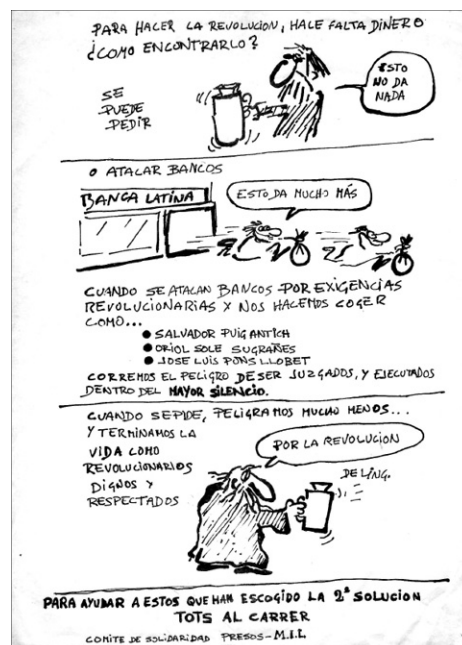 PARA HACER LA REVOLUCION, HALE FALTA DINERO
¿COMO ENCONTRARLO?
SE
PUEDE
PEDIR
ESTO
NO DA
NADA
O ATACAR BANCOS
BANCA LATINA
ESTO DA MUCHO MÁS
CUANDO SE ATACAN BANCOS POR EXIGENCIAS
REVOLUCIONARIAS Y NOS HACEMOS COGER
COMO...
● SALVADOR PUIG ANTICH
● ORIOL SOLE SUGRAÑES
● JOSE LUIS PONS LLOBET
CORREMOS EL PELIGRO DE SER JUZGADOS, Y EJECUTADOS
DENTRO DEL MAYOR SILENCIO.
CUANDO SE PIDE, PELIGRAMOS MUCHO MENOS...
Y TERMINAMOS LA
VIDA COMO
REVOLUCIONARIOS
DIGNOS Y
RESPETADOS
POR LA REVOLUCION
DE LING.
PARA AYUDAR A ESTOS QUE HAN ESCOGIDO LA 2ª SOLUCION
TOTS AL CARRER
COMITE DE SOLIDARIDAD PRESOS-M.I.L